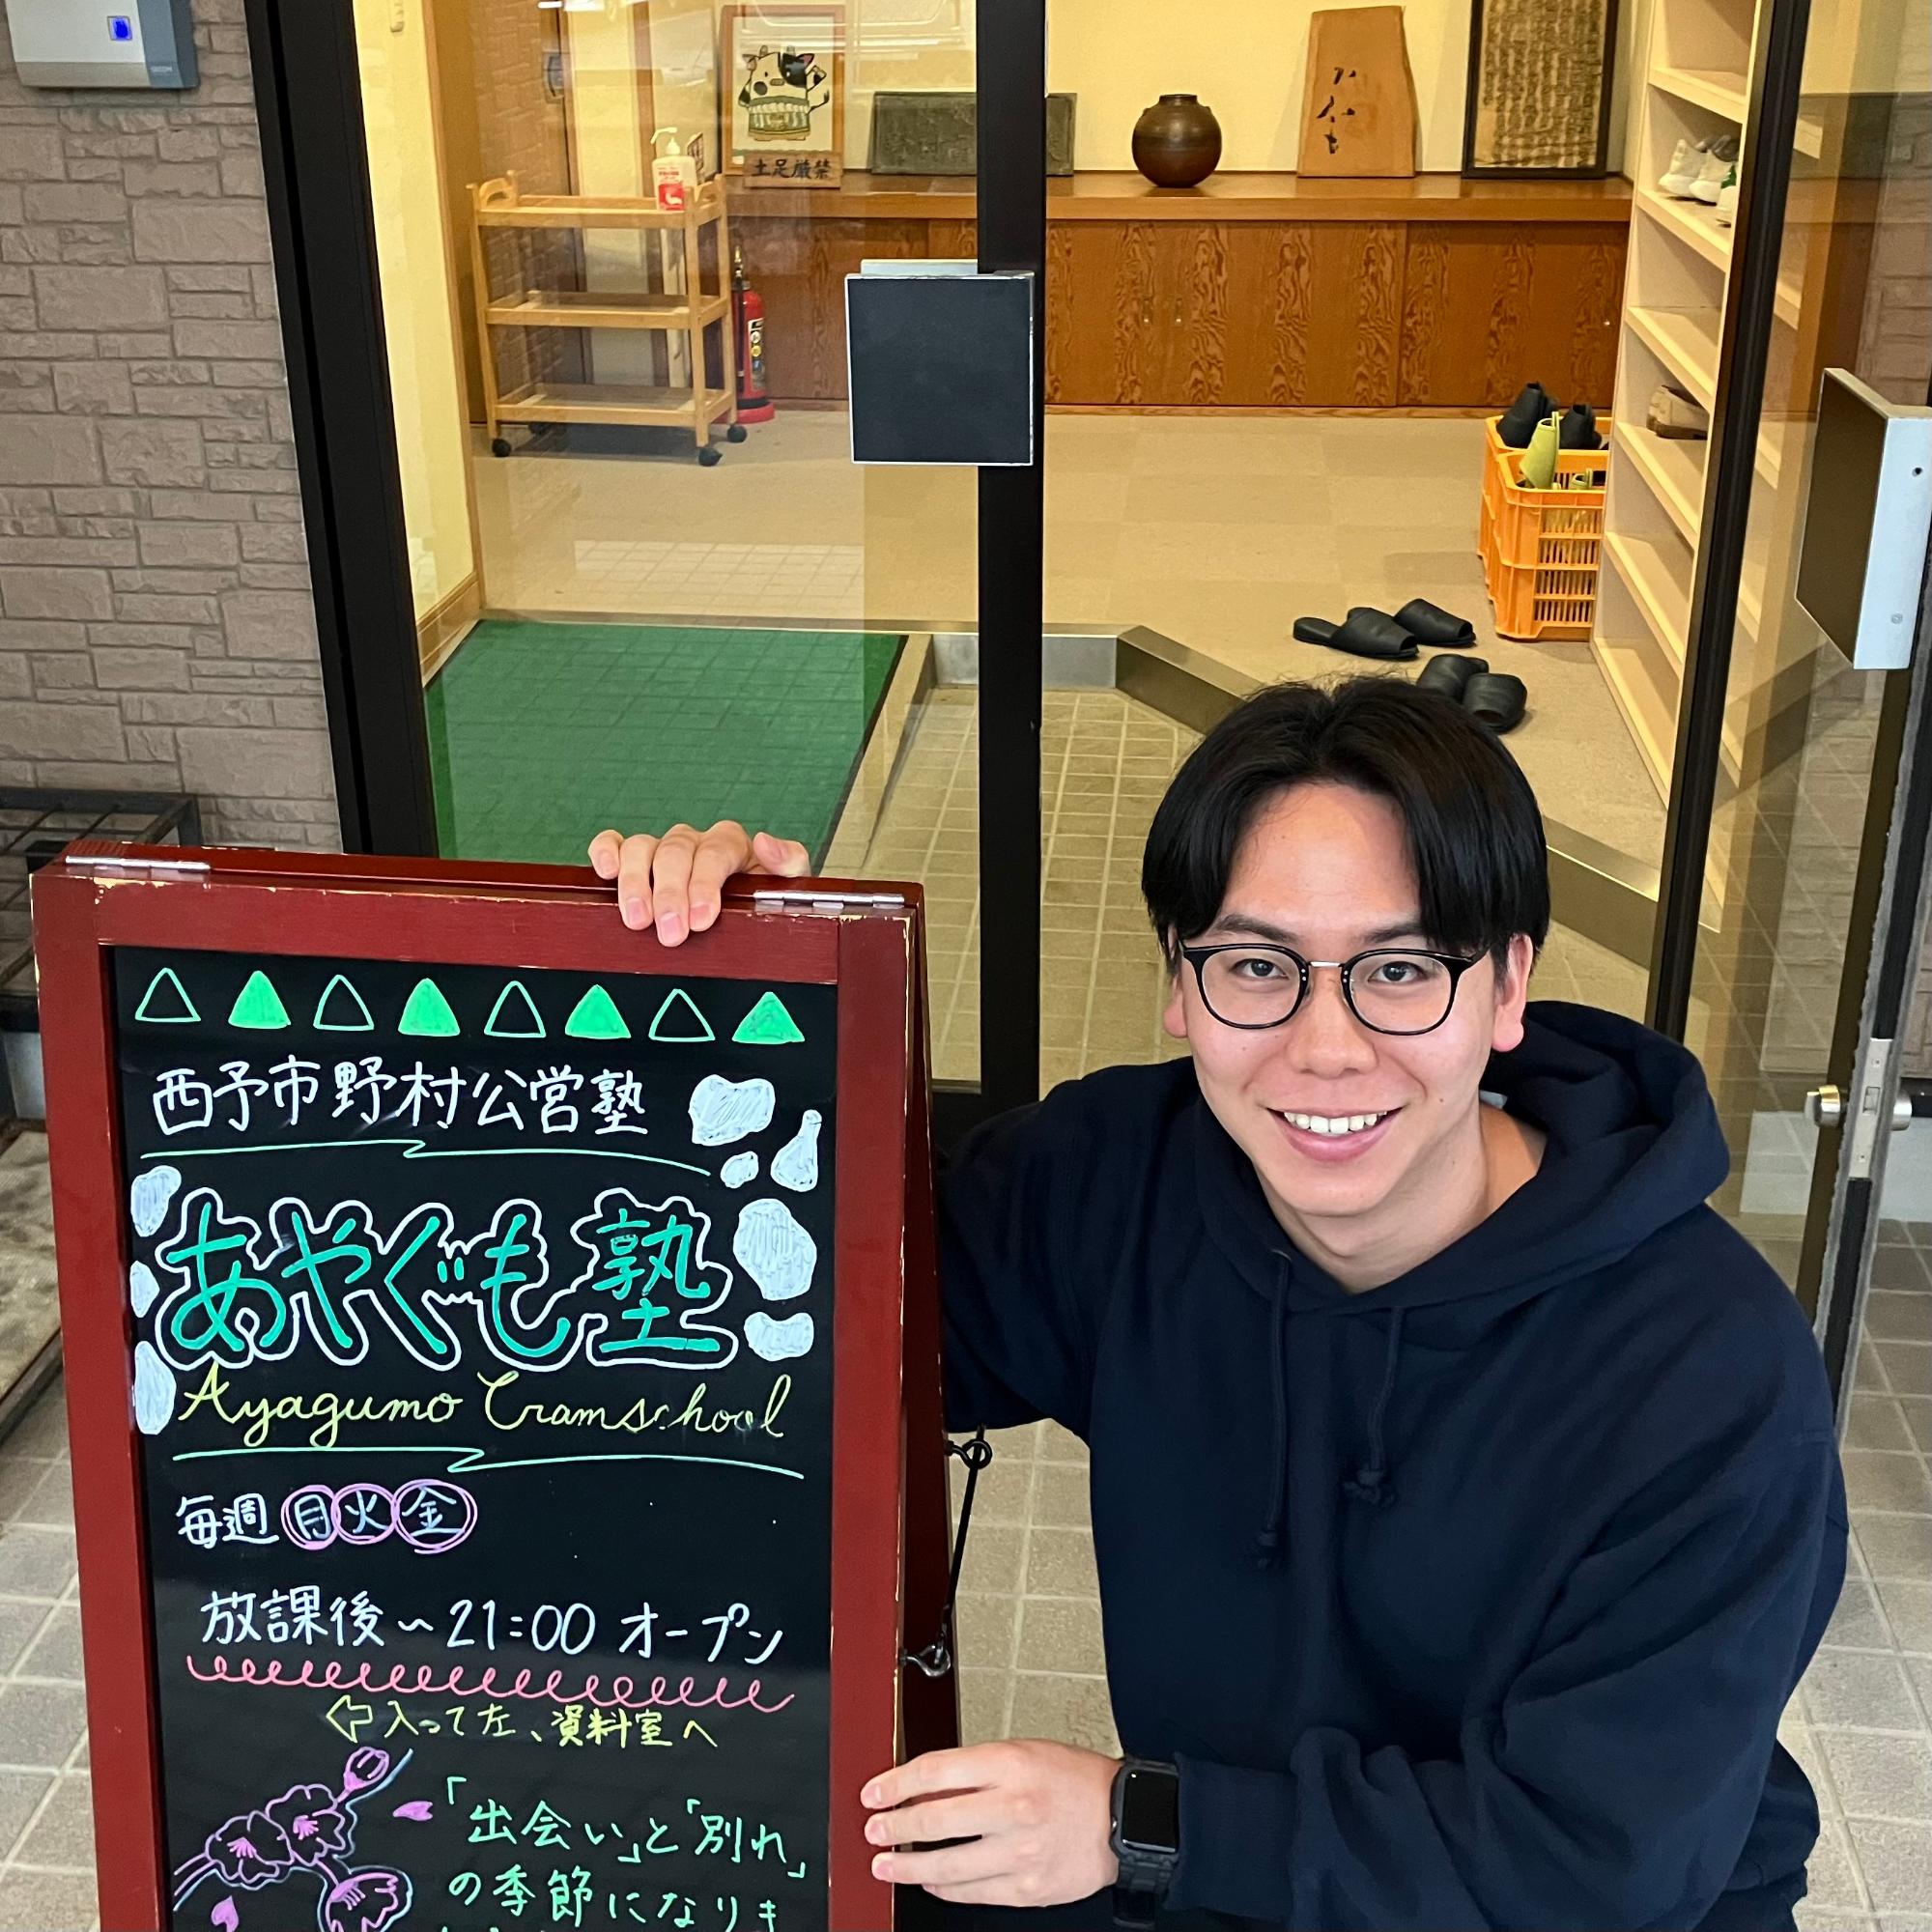 土足厳禁
西予市野村公営塾
あやぐも塾
Ayagumo Cramschool
毎週月火金
放課後~21:00オープン
入って左、資料室へ
「出会い」と「別れ」
の季節になりま